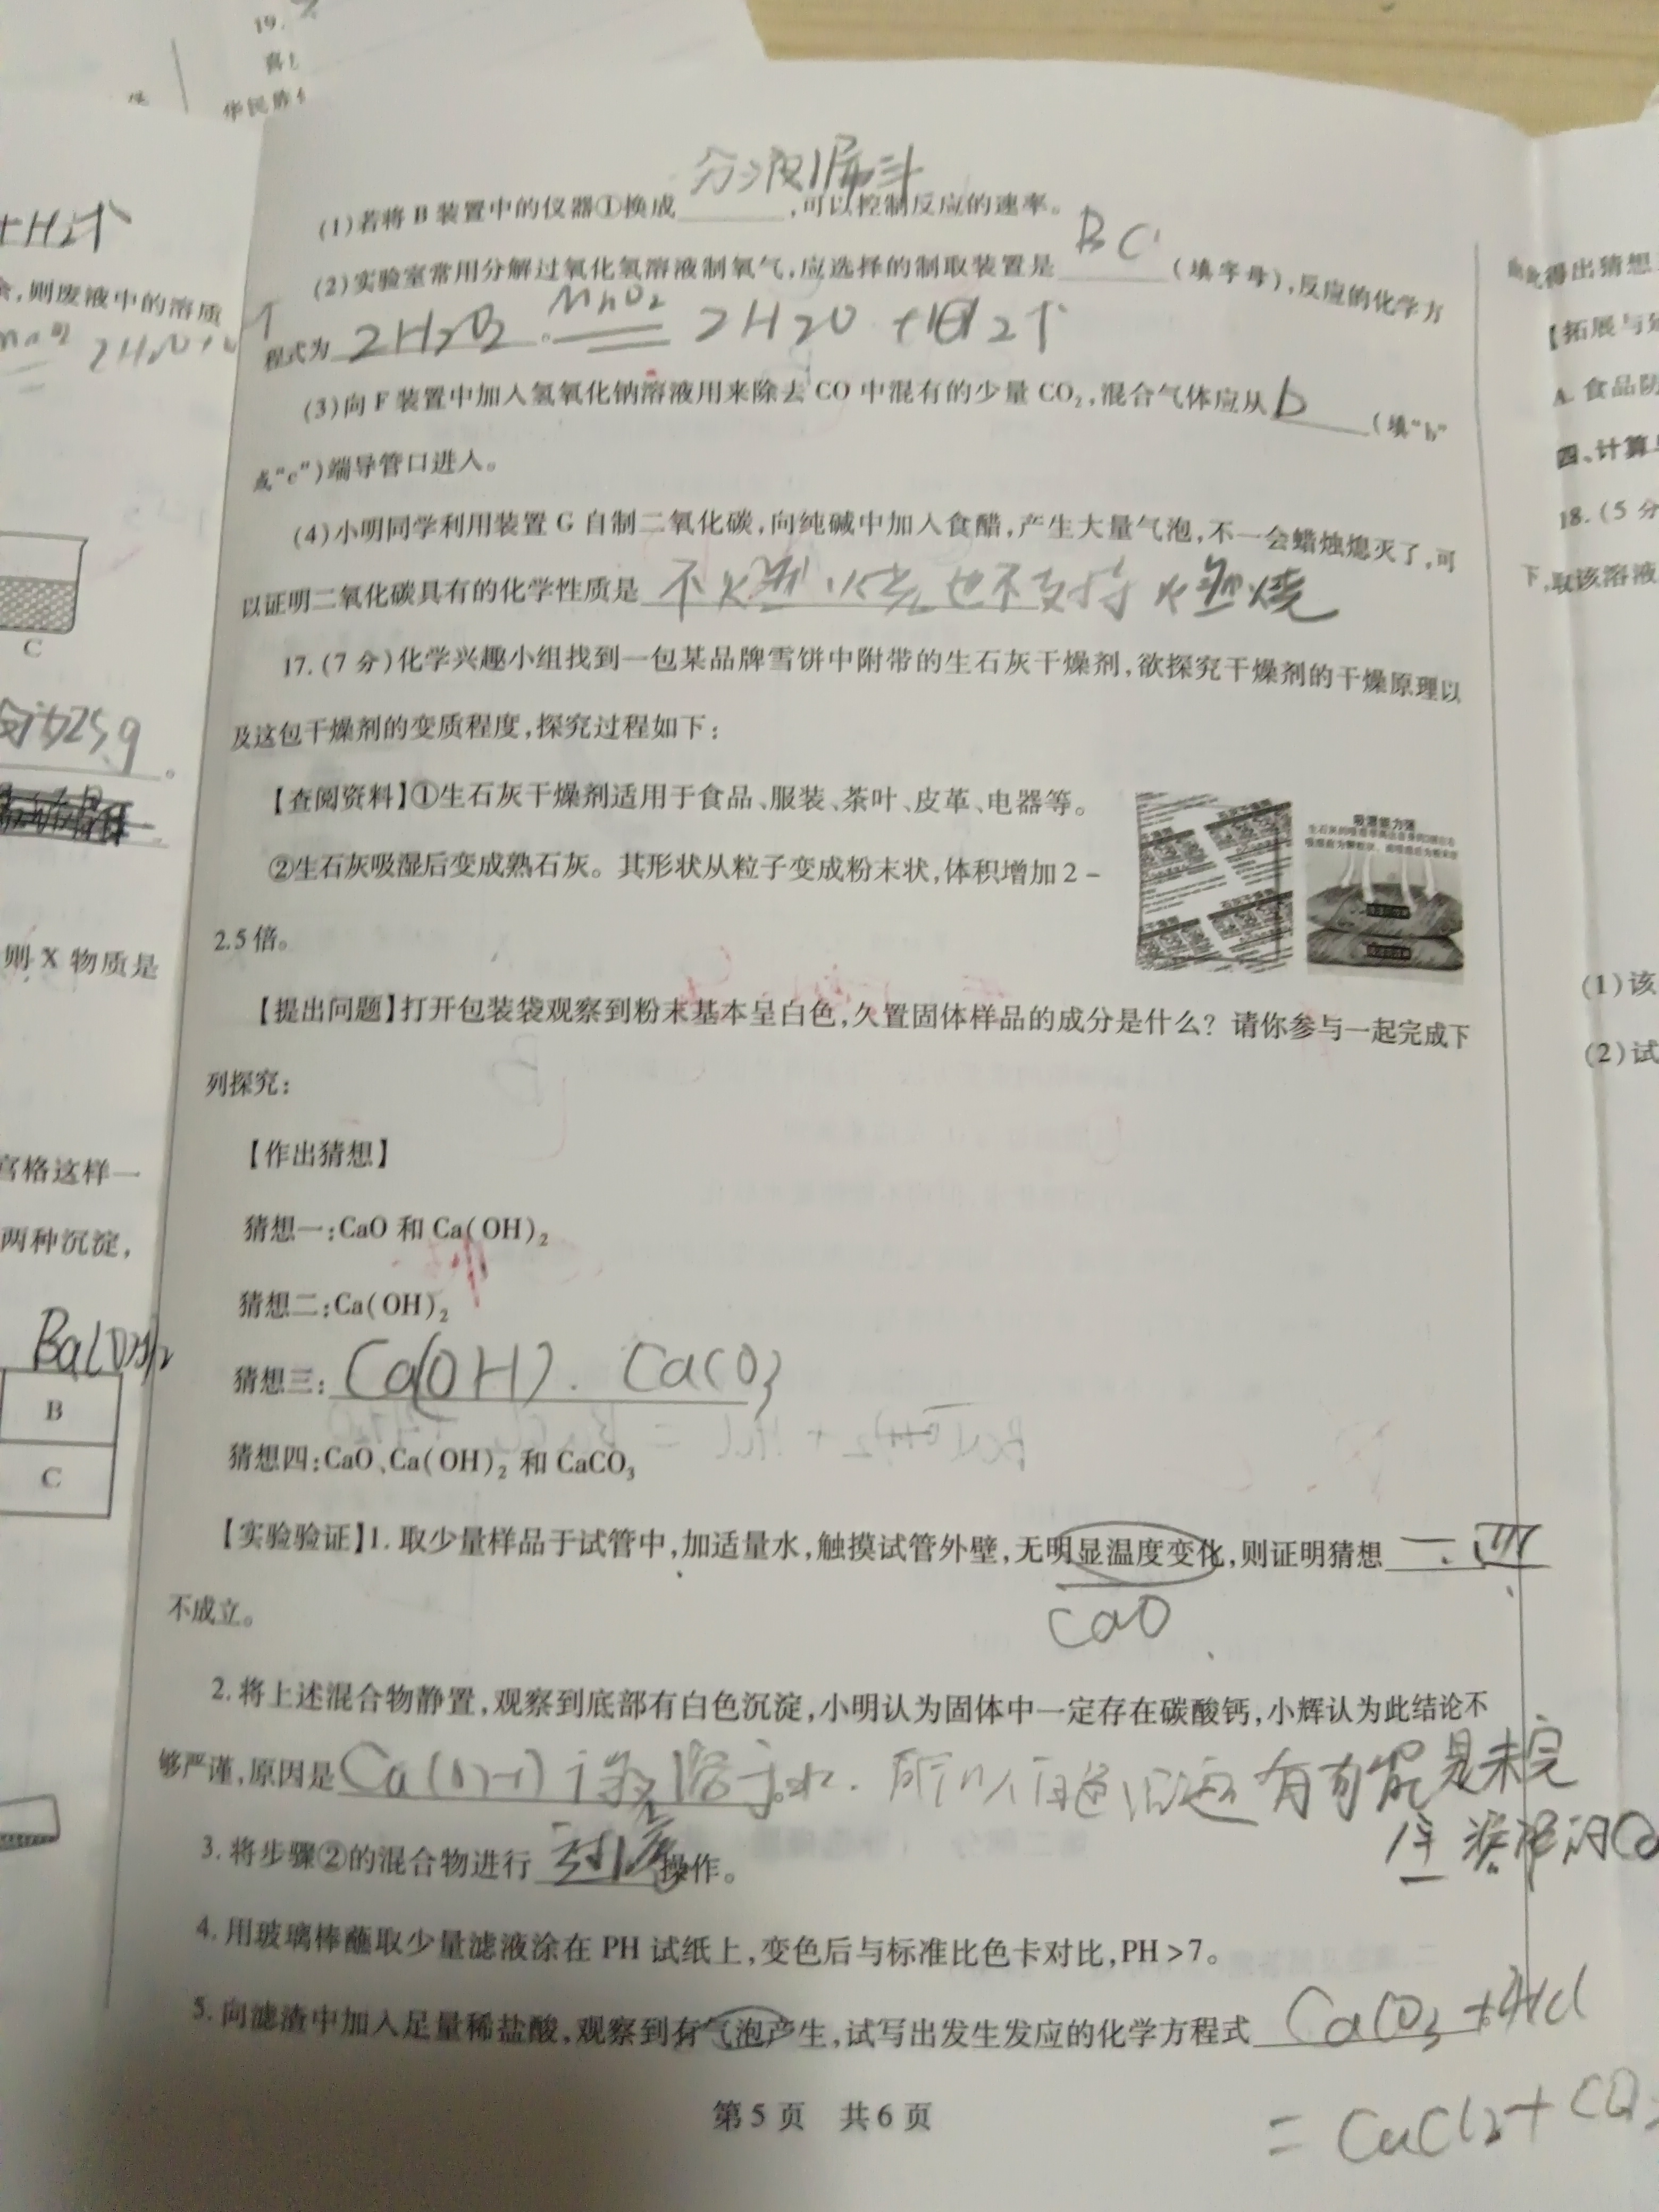 19.
喜
华民族
+H2↑
余,则废液中的溶质
C
则 X 物质是
宫格这样一
两种沉淀,
Ba(OH)2
B
C
分液漏斗
(1)若将 B 装置中的仪器①换成______,可以控制反应的速率。
BC
(2)实验室常用分解过氧化氢溶液制氧气,应选择的制取装置是______(填字母),反应的化学方
程式为 2H2O2 MnO2 2H2O + 2↑
(3)向 F 装置中加入氢氧化钠溶液用来除去 CO 中混有的少量 CO₂,混合气体应从 b (填“b”
或“c”)端导管口进入。
(4)小明同学利用装置 G 自制二氧化碳,向纯碱中加入食醋,产生大量气泡,不一会蜡烛熄灭了,可
以证明二氧化碳具有的化学性质是 不燃烧也不支持燃烧
17.(7 分)化学兴趣小组找到一包某品牌雪饼中附带的生石灰干燥剂,欲探究干燥剂的干燥原理以
及这包干燥剂的变质程度,探究过程如下:
【查阅资料】①生石灰干燥剂适用于食品、服装、茶叶、皮革、电器等。
②生石灰吸湿后变成熟石灰。其形状从粒子变成粉末状,体积增加 2 –
2.5 倍。
吸湿能力强
【提出问题】打开包装袋观察到粉末基本呈白色,久置固体样品的成分是什么? 请你参与一起完成下
列探究:
【作出猜想】
猜想一:CaO 和 Ca(OH)₂
猜想二:Ca(OH)₂
猜想三: Ca(OH). CaCO3
猜想四:CaO、Ca(OH)₂ 和 CaCO₃
【实验验证】1. 取少量样品于试管中,加适量水,触摸试管外壁,无明显温度变化,则证明猜想 一. 四
不成立。
CaO
2. 将上述混合物静置,观察到底部有白色沉淀,小明认为固体中一定存在碳酸钙,小辉认为此结论不
够严谨,原因是 Ca(OH) 微溶于水. 所以白色沉淀有可能是未完
全溶解的Ca
3. 将步骤②的混合物进行 过滤 操作。
4. 用玻璃棒蘸取少量滤液涂在 PH 试纸上,变色后与标准比色卡对比,PH >7。
5. 向滤渣中加入足量稀盐酸,观察到有气泡产生,试写出发生发应的化学方程式 CaCO3 + 2HCl
= CaCl2 + CO2
第 5 页 共 6 页
此得出猜想
【拓展与
A. 食品防
四、计算
18.(5 分
下,取该溶液
(1)该
(2)试